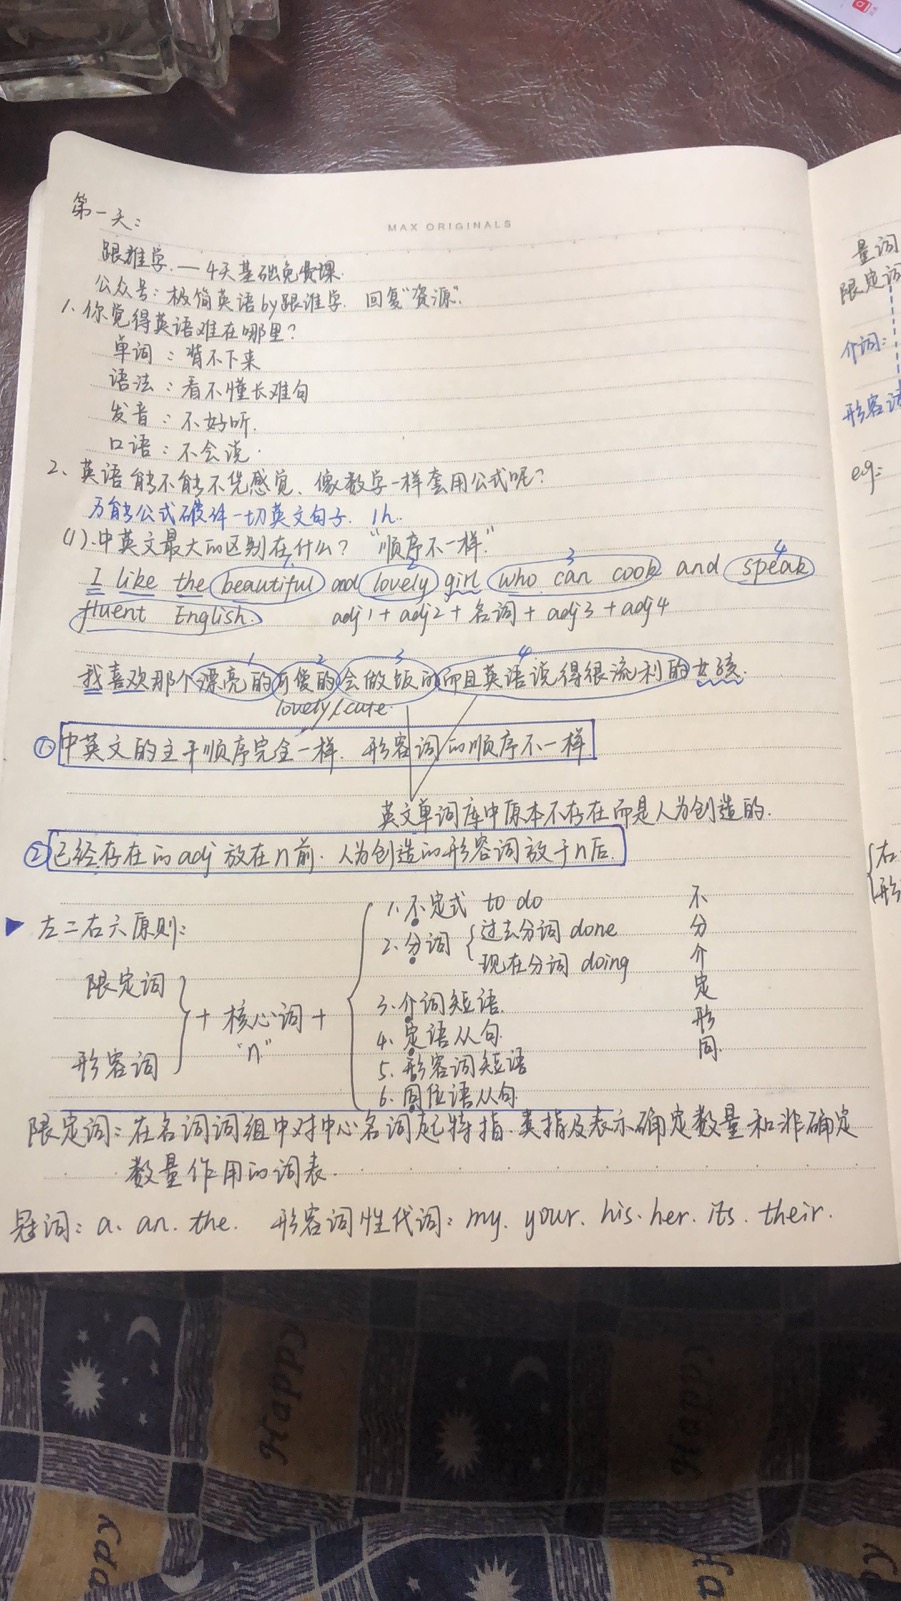 MAX ORIGINALS
第一天:
跟谁学.—4天基础免费课.
公众号:极简英语by跟谁学. 回复"资源".
1、你觉得英语难在哪里?
单词:背不下来
语法:看不懂长难句
发音:不好听.
口语:不会说.
2、英语能不能不凭感觉、像数学一样套用公式呢?
万能公式破译一切英文句子. 1h.
(1).中英文最大的区别在什么? "顺序不一样"
1 2 3 4
I like the beautiful and lovely girl who can cook and speak
fluent English. adj1+adj2+名词+adj3+adj4
1 2 3 4
我喜欢那个漂亮的可爱的会做饭的而且英语说得很流利的女孩.
lovely/cute.
① 中英文的主干顺序完全一样. 形容词的顺序不一样
英文单词库中原本不存在而是人为创造的.
② 已经存在的adj放在n前. 人为创造的形容词放于n后.
▶ 左二右六原则:
限定词
形容词
+ 核心词 +
"n"
1.不定式 to do 不
2.分词 过去分词 done 分
现在分词 doing 介
3.介词短语. 定
4.定语从句. 形
5.形容词短语 同.
6.同位语从句.
限定词:在名词词组中对中心名词起特指.类指及表示确定数量和非确定
数量作用的词表.
冠词:a. an. the. 形容词性代词:my. your. his. her. its. their.
量词
限定词
介词:
形容词
eg:
右
形
Happy
Happy